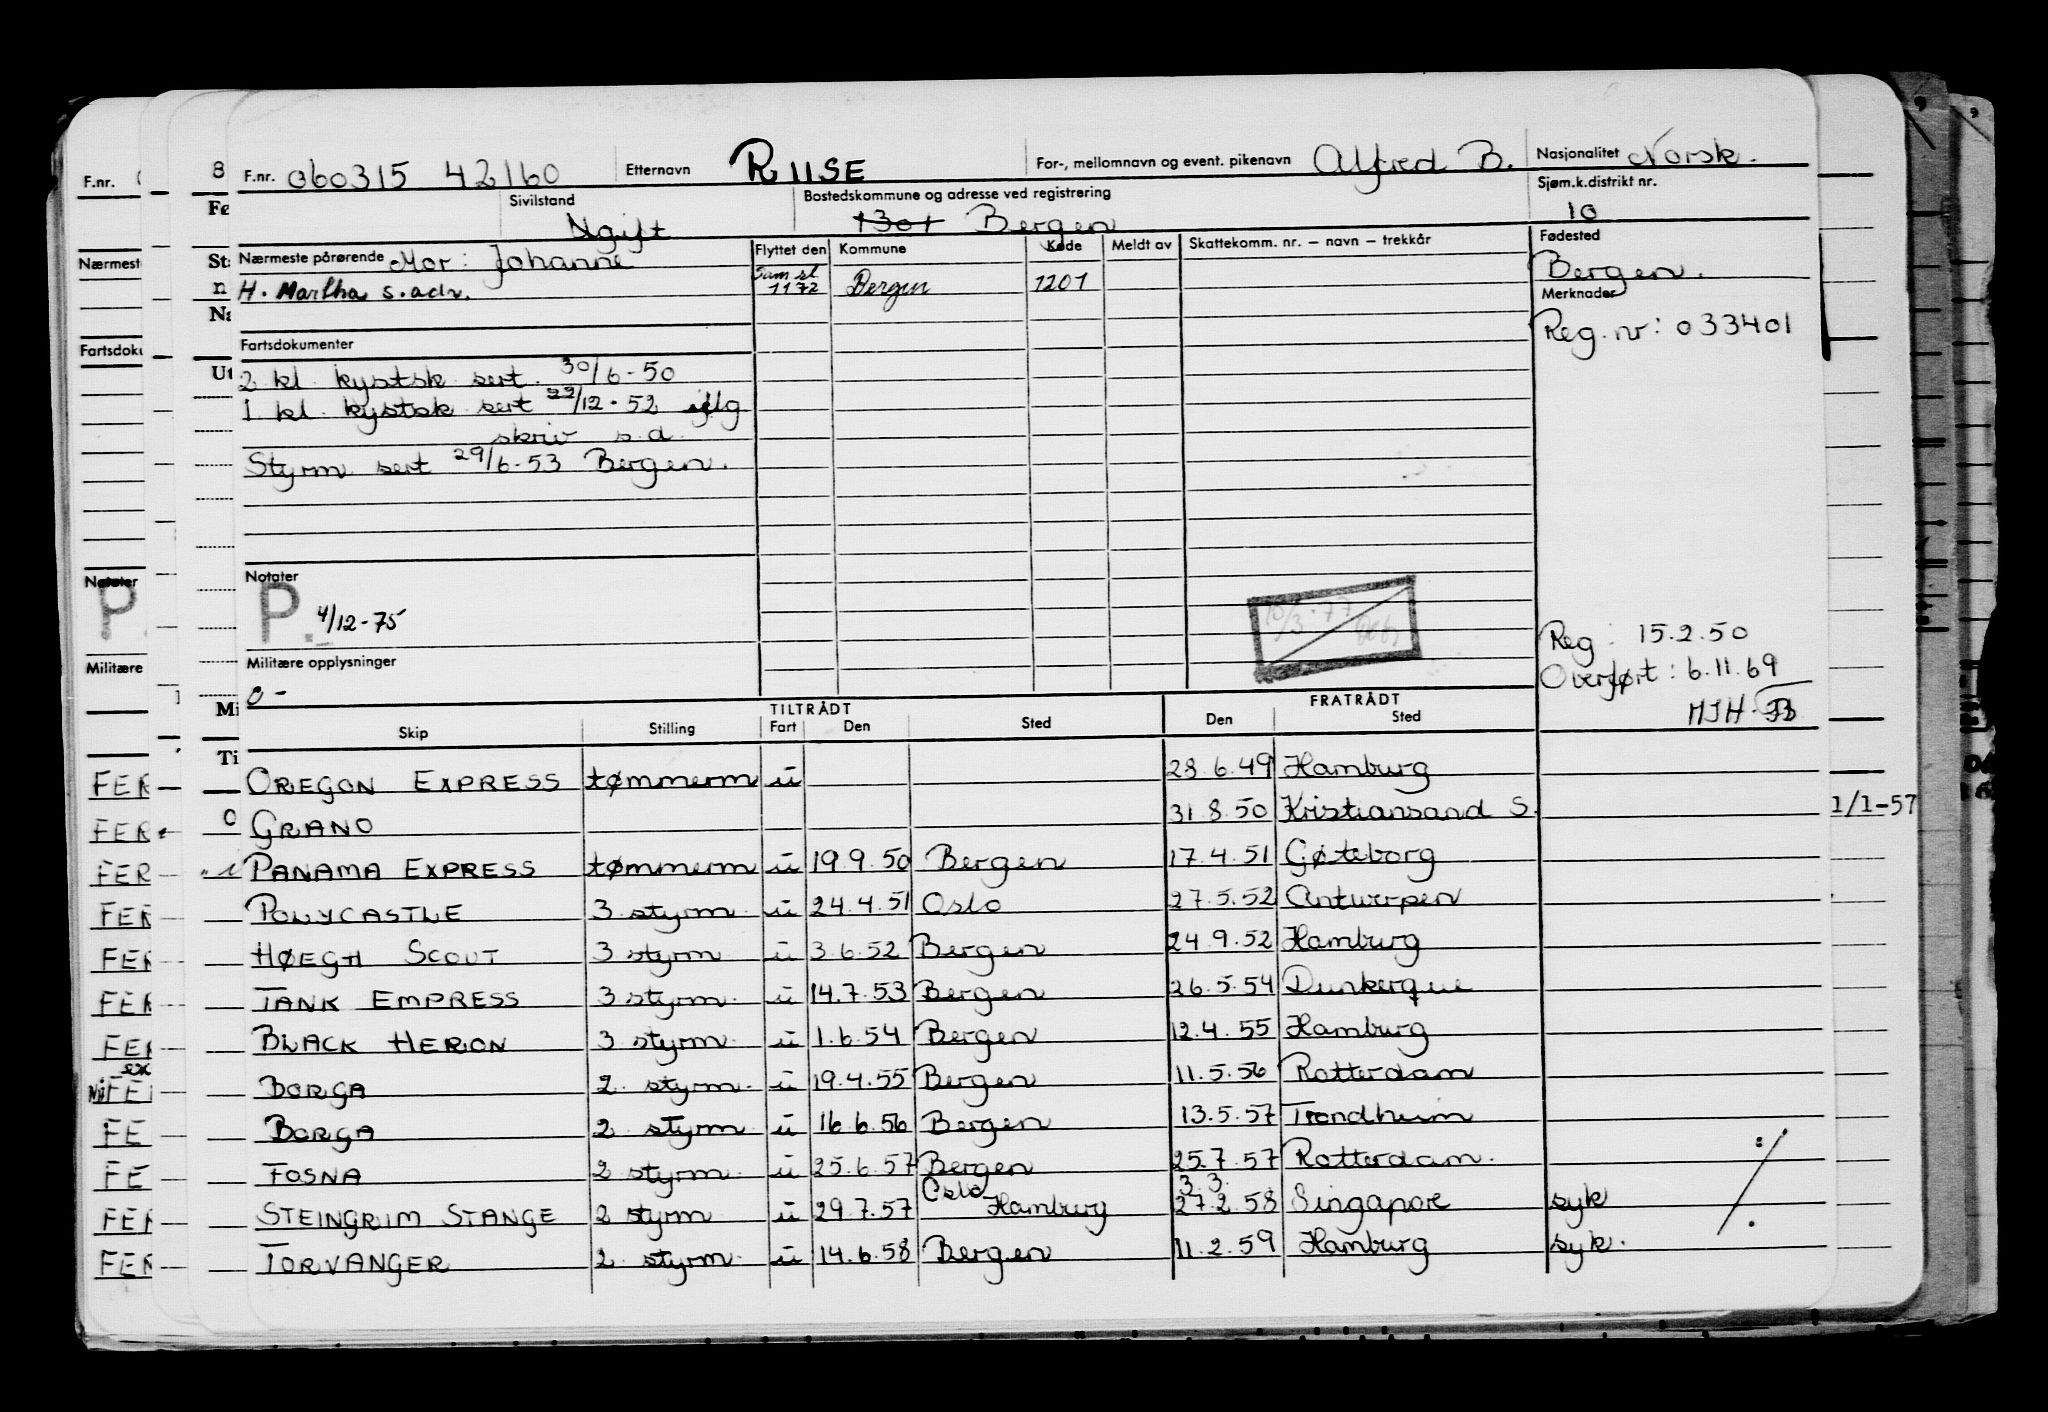 F.nr. 060315 42160 Etternavn RIISE For-, mellomnavn og event. pikenavn Alfred B. Nasjonalitet Norsk.
Sivilstand Ugift Bostedskommune og adresse ved registrering 1301 Bergen Sjøm.k.distrikt nr. 10
Nærmeste pårørende Mor: Johanne Flyttet den Kommune Kode Meldt av Skattekomm. nr. – navn – trekkår Fødested
H. Martha s. adr. 1172 Bergen 1201 Bergen.
Merknader
Reg. nr: 033401
Fartsdokumenter
2 kl kystsk sert. 30/6-50
1 kl kystsk sert 22/12-52 iflg
skriv s.d.
Styrm sert 29/6-53 Bergen.
Notater
P. 4/12-75
10/3-77
Reg: 15.2.50
Overført: 6.11.69
Militære opplysninger
0-
MJH
TILTRÅDT FRATRÅDT
Skip Stilling Fart Den Sted Den Sted
OREGON EXPRESS tømmerm u 28.6.49 Hamburg
GRANO 31.8.50 Kristiansand S.
PANAMA EXPRESS tømmerm u 19.9.50 Bergen 17.4.51 Gøteborg
POLYCASTLE 3 styrm u 24.4.51 Oslo 27.5.52 Antwerpen
HØEGH SCOUT 3 styrm u 3.6.52 Bergen 24.9.52 Hamburg
TANK EMPRESS 3 styrm u 14.7.53 Bergen 26.5.54 Dunkerque
BLACK HERON 3 styrm u 1.6.54 Bergen 12.4.55 Hamburg
BORGA 2. styrm u 19.4.55 Bergen 11.5.56 Rotterdam
BORGA 2 styrm u 16.6.56 Bergen 13.5.57 Trondheim
FOSNA 2 styrm u 25.6.57 Bergen 25.7.57 Rotterdam.
Oslo 3.3.
STEINGRIM STANGE 2 styrm u 29.7.57 Hamburg 27.2.58 Singapore syk
TORVANGER 2. styrm u 14.6.58 Bergen 11.2.59 Hamburg syk.
F.nr.
Nærmest
Notater
P.
Militære
1/1-57